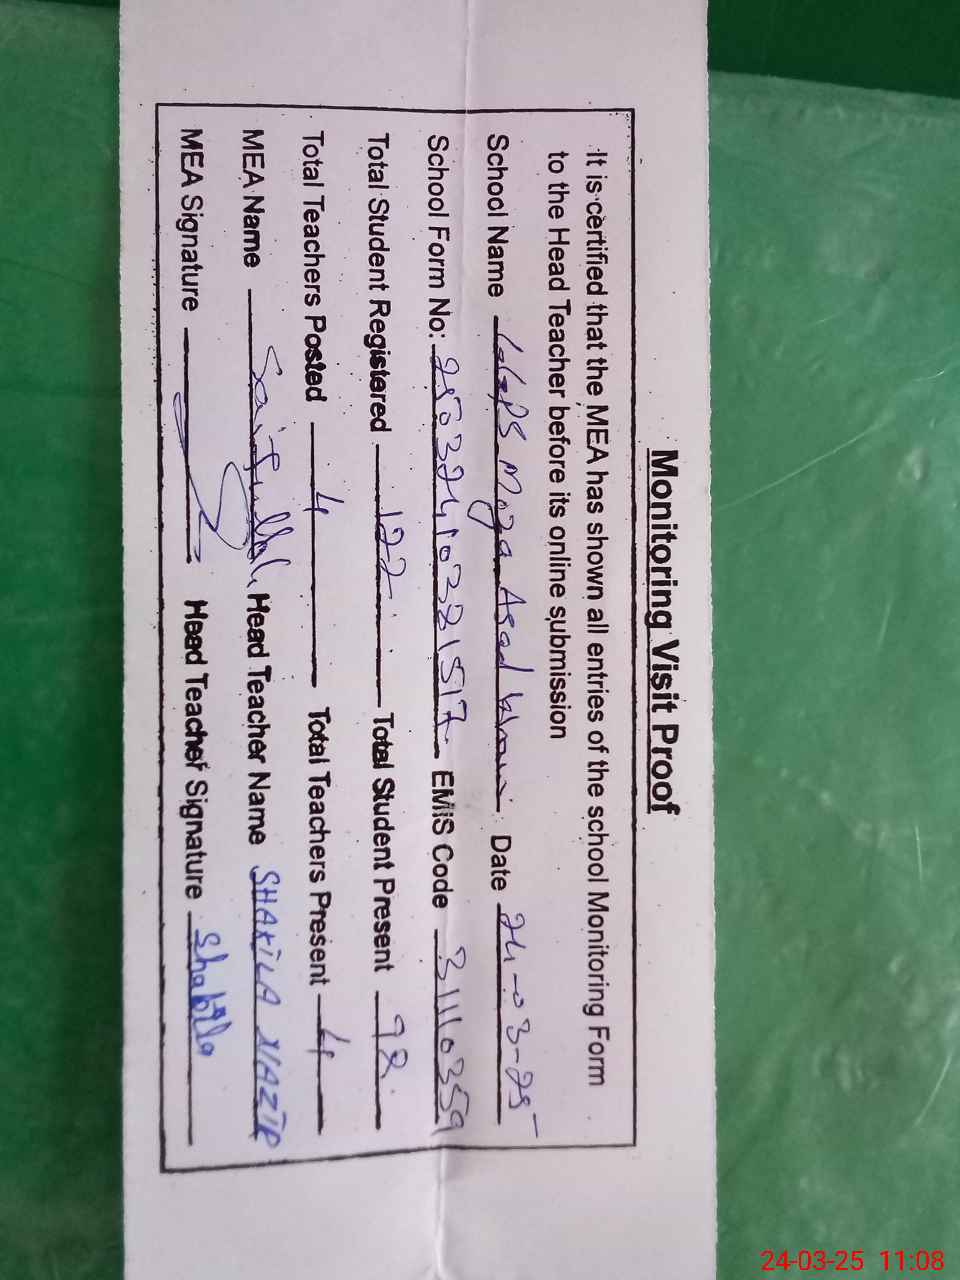 Monitoring Visit Proof
It is certified that the MEA has shown all entries of the school Monitoring Form
to the Head Teacher before its online submission
School Name GGPS Moza Asad Date 24-03-25
School Form No: EMIS Code 31110359
Total Student Registered 122 Total Student Present 92
Total Teachers Posted 4 Total Teachers Present 4
MEA Name Saifullah Head Teacher Name SHAKILA NAZIR
MEA Signature Head Teacher Signature Shakila
24-03-25 11:08